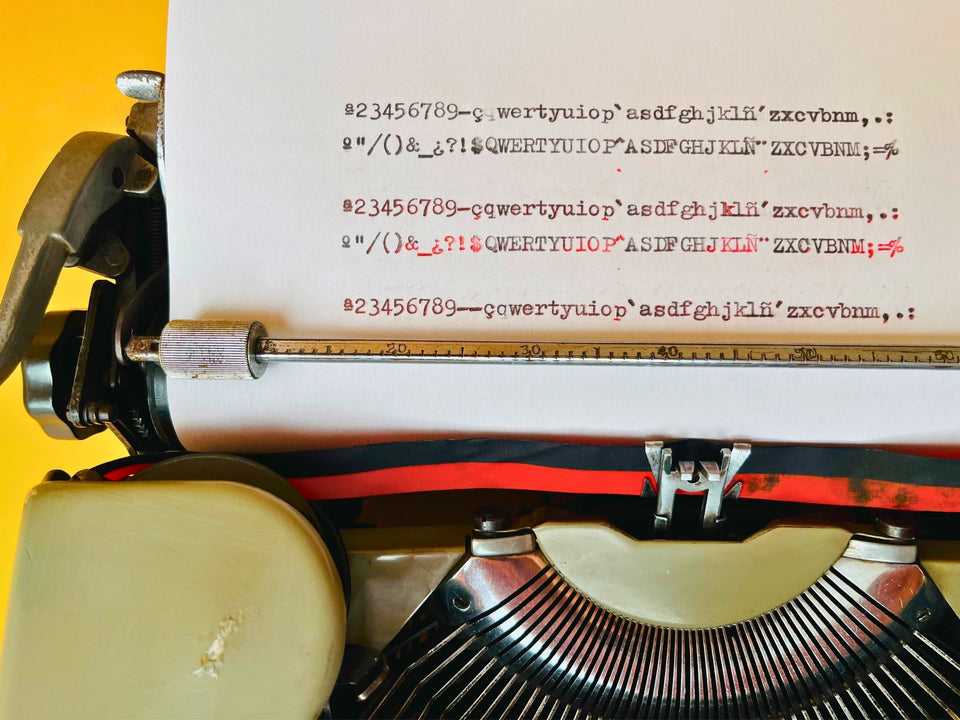 ª23456789-çqwertyuiop`asdfghjklñ´zxcvbnm,.:
º"/()&_¿?!$QWERTYUIOP^ASDFGHJKLÑ¨ZXCVBNM;=%
ª23456789-çqwertyuiop`asdfghjklñ´zxcvbnm,.:
º"/()&_¿?!$QWERTYUIOP^ASDFGHJKLÑ¨ZXCVBNM;=%
ª23456789--çqwertyuiop`asdfghjklñ´zxcvbnm,.:
20 30 40 50 60